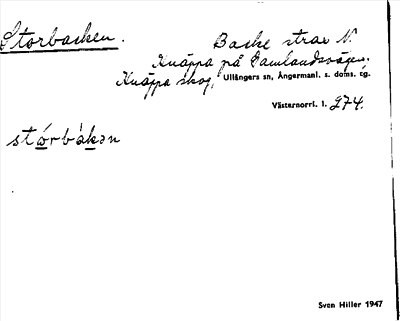 Storbacken. Backe strax N.
Knäppa på Gamlandsvägen.
Knäppa skog, Ullångers sn, Ångermanl. s. doms. tg.
Västernorrl. l. 274.
stórbàkən
Sven Hiller 1947